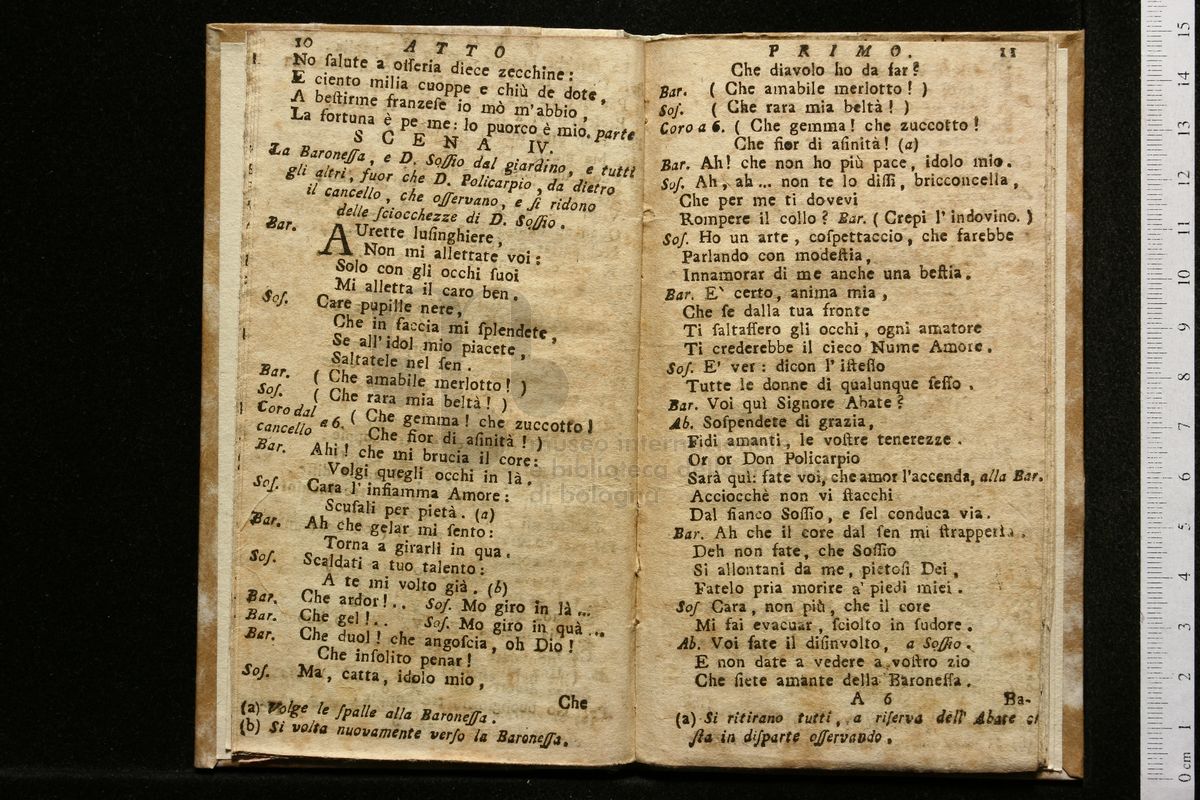 10 ATTO
No ſalute a oſteria diece zecchine:
E ciento milia cuoppe e chiù de dote,
A beſtirme franzeſe io mò m'abbio,
La fortuna è pe me: lo puorco è mio. parte
SCENA IV.
La Baroneſſa, e D. Soſſio dal giardino, e tutti
gli altri, fuor che D. Policarpio, da dietro
il cancello, che oſſervano, e ſi ridono
delle ſciocchezze di D. Soſſio.
Bar. AUrette luſinghiere,
Non mi allettate voi:
Solo con gli occhi ſuoi
Mi alletta il caro ben.
Soſ. Care pupille nere,
Che in faccia mi ſplendete,
Se all'idol mio piacete,
Saltatele nel ſen.
Bar. ( Che amabile merlotto! )
Soſ. ( Che rara mia beltà! )
Coro dal cancello a 6. ( Che gemma! che zuccotto!
Che fior di aſinità! )
Bar. Ahi! che mi brucia il core:
Volgi quegli occhi in là,
Soſ. Cara l'infiamma Amore:
Scuſali per pietà. (a)
Bar. Ah che gelar mi ſento:
Torna a girarli in qua.
Soſ. Scaldati a tuo talento:
A te mi volto già. (b)
Bar. Che ardor!.. Soſ. Mo giro in là ...
Bar. Che gel!.. Soſ. Mo giro in quà ...
Bar. Che duol! che angoſcia, oh Dio!
Che inſolito penar!
Soſ. Ma, catta, idolo mio,
Che
(a) Volge le ſpalle alla Baroneſſa.
(b) Si volta nuovamente verſo la Baroneſſa.
PRIMO. 11
Che diavolo ho da far?
Bar. ( Che amabile merlotto! )
Soſ. ( Che rara mia beltà! )
Coro a 6. ( Che gemma! che zuccotto!
Che fior di aſinità! (a)
Bar. Ah! che non ho più pace, idolo mio.
Soſ. Ah, ah... non te lo diſſi, bricconcella,
Che per me ti dovevi
Rompere il collo? Bar. ( Crepi l'indovino. )
Soſ. Ho un arte, coſpettaccio, che farebbe
Parlando con modeſtia,
Innamorar di me anche una beſtia.
Bar. E` certo, anima mia,
Che ſe dalla tua fronte
Ti ſaltaſſero gli occhi, ogni amatore
Ti crederebbe il cieco Nume Amore.
Soſ. E' ver: dicon l'iſteſſo
Tutte le donne di qualunque ſeſſo.
Bar. Voi quì Signore Abate?
Ab. Soſpendete di grazia,
Fidi amanti, le voſtre tenerezze.
Or or Don Policarpio
Sarà quì: fate voi, che amor l'accenda, alla Bar.
Acciocchè non vi ſtacchi
Dal fianco Soſſio, e ſel conduca via.
Bar. Ah che il core dal ſen mi ſtrapperia.
Deh non fate, che Soſſio
Si allontani da me, pietoſi Dei,
Fatelo pria morire a' piedi miei.
Soſ Cara, non più, che il core
Mi fai evacuar, ſciolto in ſudore.
Ab. Voi fate il diſinvolto, a Soſſio.
E non date a vedere a voſtro zio
Che ſiete amante della Baroneſſa.
A 6 Ba-
(a) Si ritirano tutti, a riſerva dell' Abate
ſta in diſparte oſſervando.
museo
biblioteca
di bologna